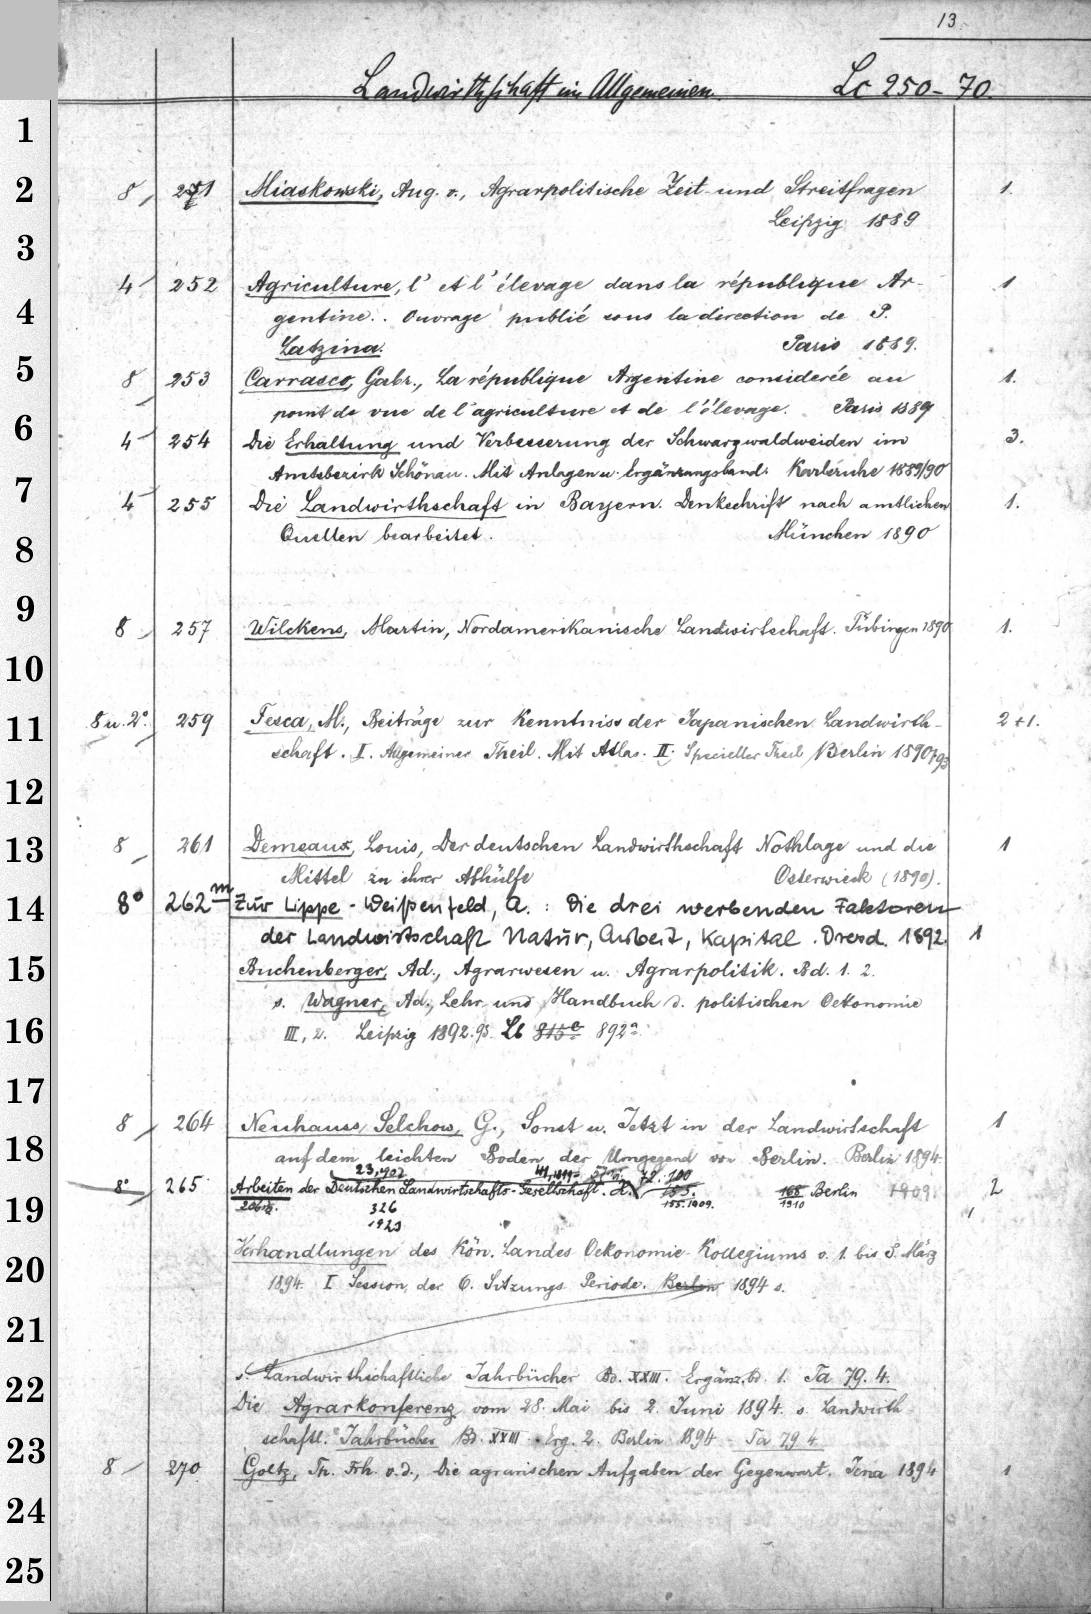 13
Landwirthschaft im Allgemeinen. Lc 250-70.
1
2
3
4
5
6
7
8
9
10
11
12
13
14
15
16
17
18
19
20
21
22
23
24
25
8 251 Miaskowski, Aug. v., Agrarpolitische Zeit- und Streitfragen 1.
Leipzig 1889
4 252 Agriculture, l' et l'élevage dans la république Ar- 1
gentine. Ouvrage publié sous la direction de P.
Latzina. Paris 1889.
8 253 Carrasco, Gabr., La république Argentine considerée au 1.
point de vue de l'agriculture et de l'élevage. Paris 1889
4 254 Die Erhaltung und Verbesserung der Schwarzwaldweiden im 3.
Amtsbezirk Schönau. Mit Anlagen u. Ergänzungsband. Karlsruhe 1889/90
4 255 Die Landwirthschaft in Bayern. Denkschrift nach amtlichen 1.
Quellen bearbeitet. München 1890
8 257 Wilckens, Martin, Nordamerikanische Landwirtschaft. Tübingen 1890 1.
8 u. 2° 259 Fesca, M., Beiträge zur Kenntniss der Japanischen Landwirth- 2+1.
schaft. I. Allgemeiner Theil. Mit Atlas. II. Specieller Theil Berlin 1890/93
8 261 Demeaux, Louis, Der deutschen Landwirthschaft Nothlage und die 1
Mittel zu ihrer Abhülfe Osterwieck (1890).
8° 262m Zur Lippe-Weißenfeld, A.: Die drei werbenden Faktoren
der Landwirtschaft Natur, Arbeit, Kapital. Dresd. 1892. 1
Buchenberger, Ad., Agrarwesen u. Agrarpolitik. Bd. 1. 2.
s. Wagner, Ad., Lehr und Handbuch d. politischen Oekonomie
III, 2. Leipzig 1892.93. Lb 815e 892a
8 264 Neuhauss Selchow, G., Sonst u. Jetzt in der Landwirtschaft 1
auf dem leichten Boden der Umgegend von Berlin. Berlin 1894
23,1902 72. 100
8° 265 Arbeiten der Deutschen Landwirtschafts-Gesellschaft. H. 155. 168 Berlin 1909. 2
326 155.1909. 1910
1923
Verhandlungen des Kön. Landes Oekonomie-Kollegiums v. 1. bis 8. März
1894. I Session der 6. Sitzungs Periode. Berlin 1894 s.
s. Landwirthschaftliche Jahrbücher Bd. XXIII. Ergänz.bd. 1. Ta 79. 4.
Die Agrarkonferenz vom 28. Mai bis 2. Juni 1894. s. Landwirth
schaftl. Jahrbücher Bd. XXIII Erg. 2. Berlin 1894 - Ta 79 4
8 270 Goltz, Th. Frh. v. d., Die agrarischen Aufgaben der Gegenwart. Jena 1894 1